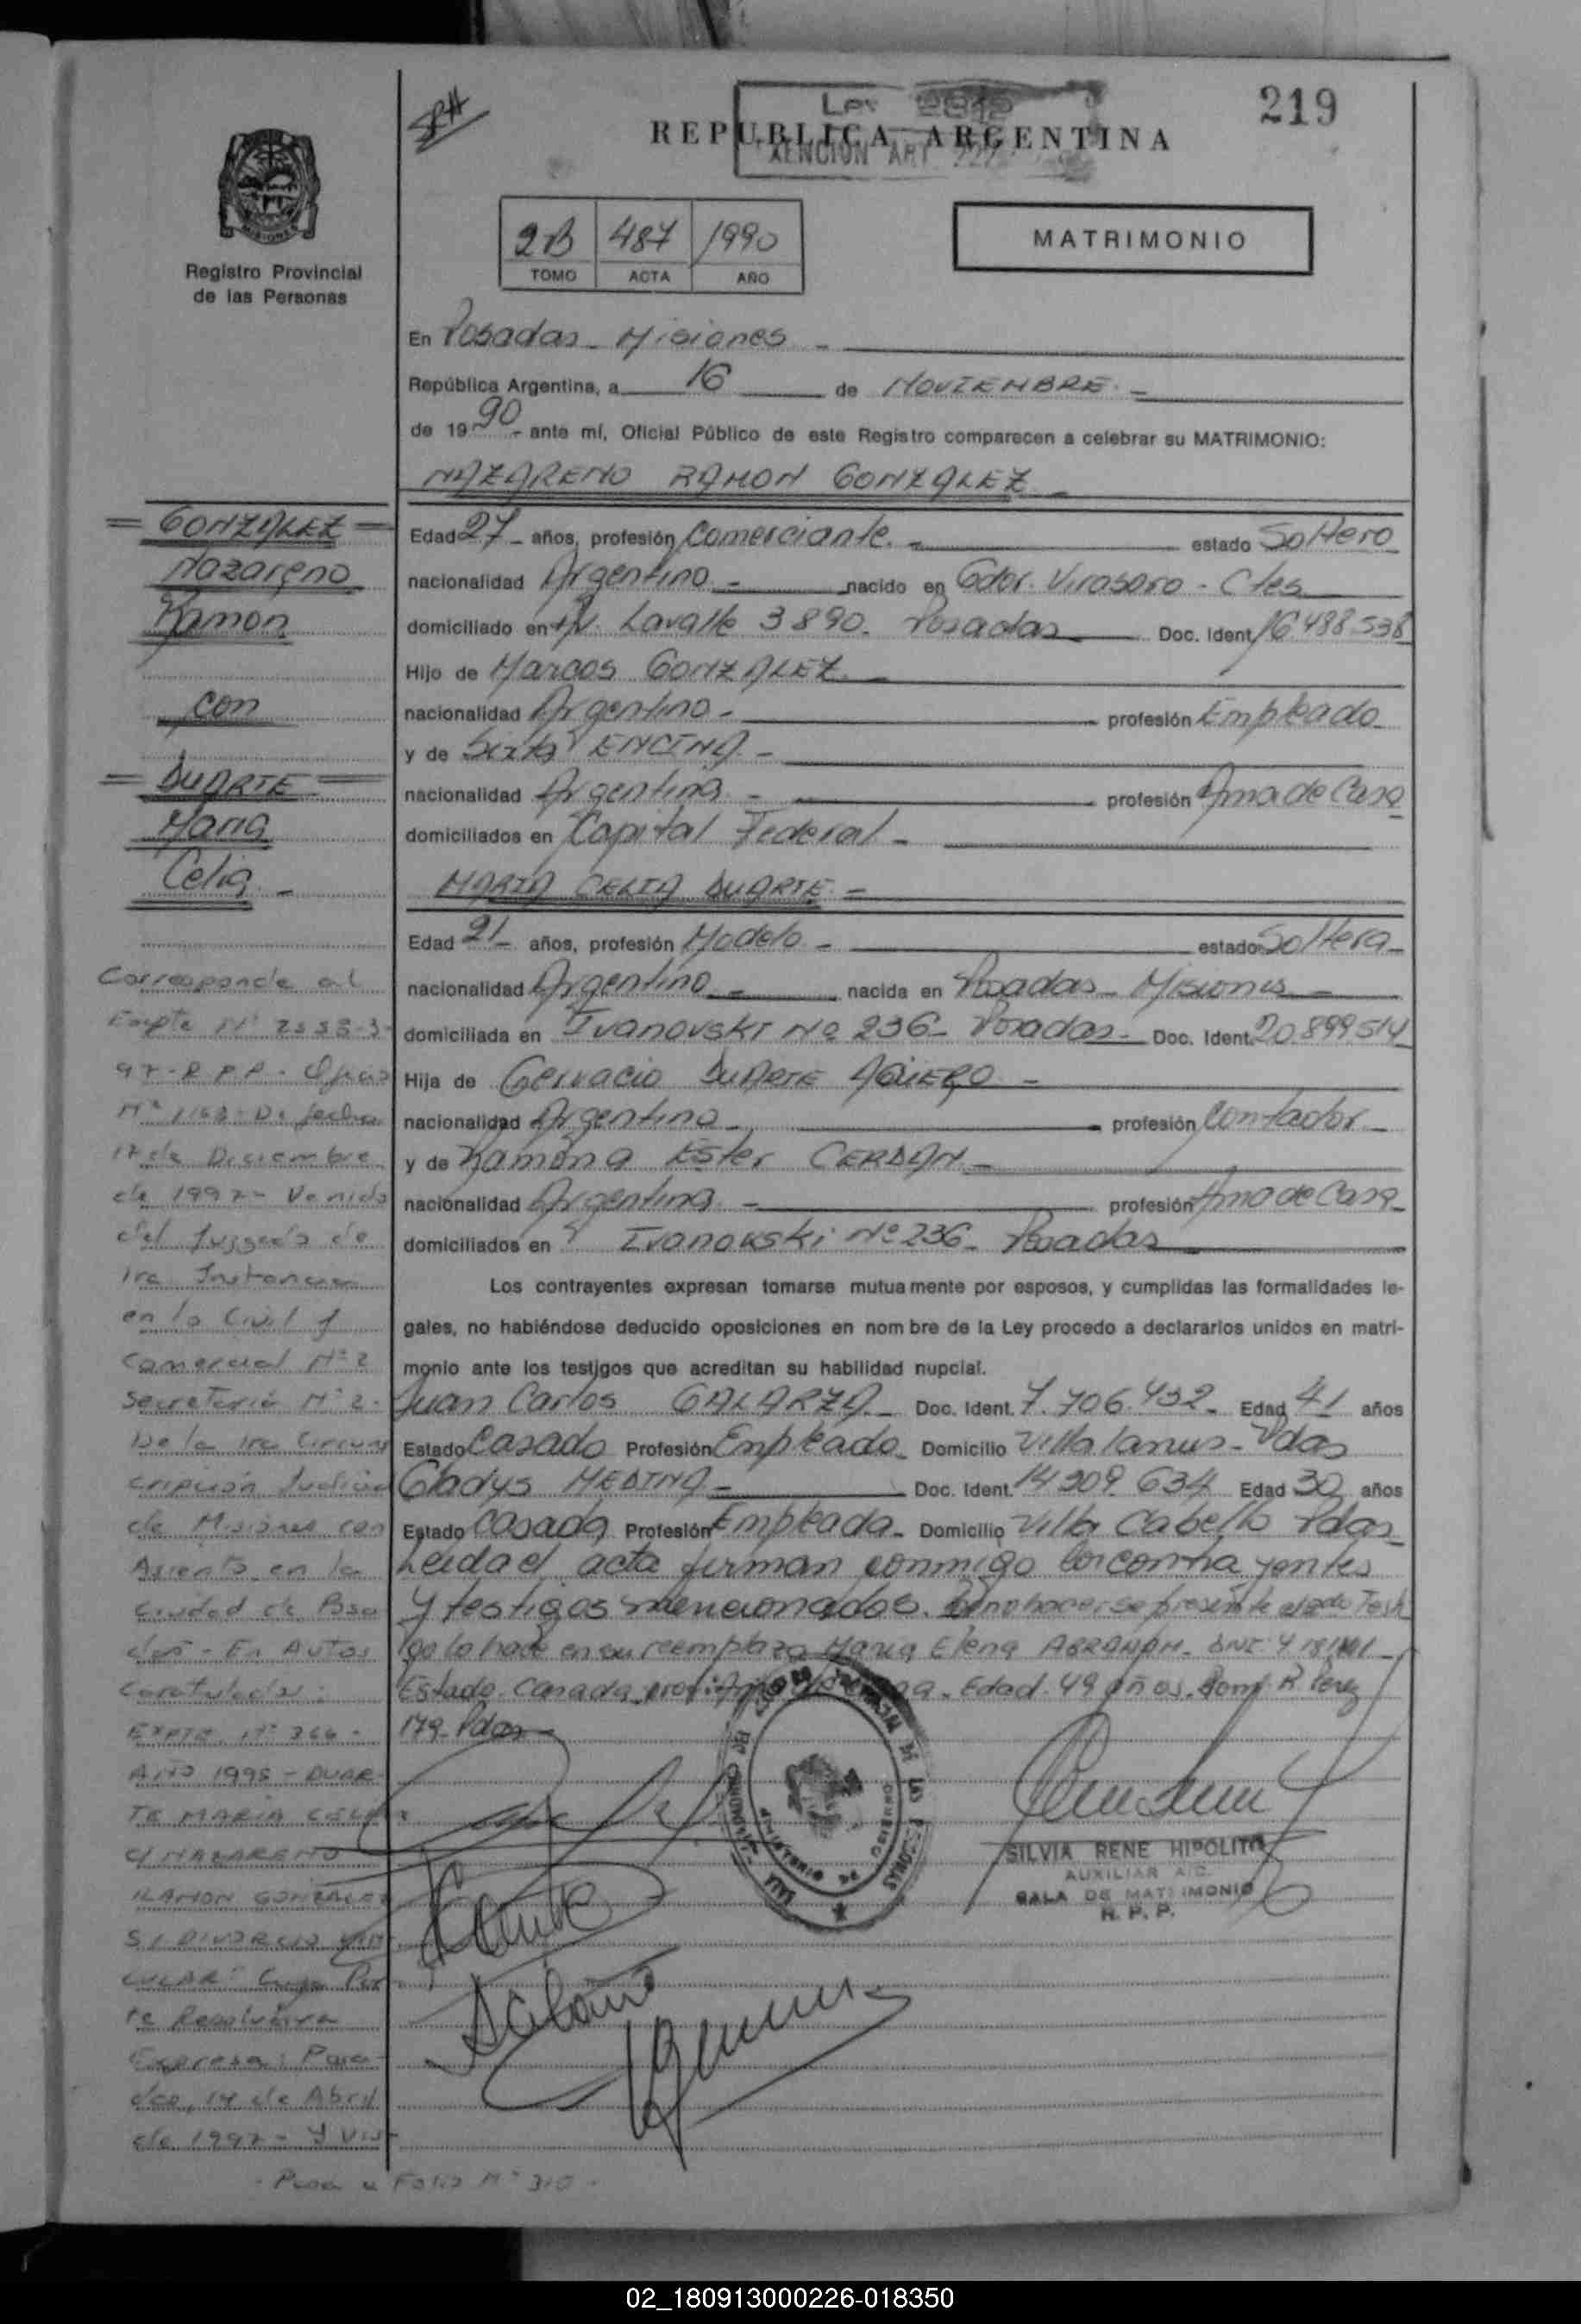 219
SRH
Ley 2812
REPUBLICA ARGENTINA
MISIONES
Registro Provincial
de las Personas
2B 487 1990
TOMO ACTA AÑO
MATRIMONIO
En Posadas - Misiones -
República Argentina, a 16 de NOVIEMBRE -
de 1990 - ante mí, Oficial Público de este Registro comparecen a celebrar su MATRIMONIO:
NAZARENO RAMON GONZALEZ -
= GONZALEZ =
Nazareno
Ramon
con
= DUARTE =
Maria
Celia -
Edad 27 - años, profesión Comerciante - estado Soltero
nacionalidad Argentino - nacido en Gdor. Virasoro - Ctes
domiciliado en Av. Lavalle 3890. Posadas Doc. Ident. 16.488.538
Hijo de Marcos GONZALEZ -
nacionalidad Argentino - profesión Empleado -
y de Sixta ENCINA -
nacionalidad Argentina - profesión Ama de Casa
domiciliados en Capital Federal -
MARIA CELIA DUARTE -
Edad 21 - años, profesión Modelo - estado Soltera -
nacionalidad Argentina - nacida en Posadas - Misiones -
domiciliada en Ivanovski Nº 236 - Posadas - Doc. Ident. 20.899.514
Hija de Gervacio DUARTE AGÜERO -
nacionalidad Argentino - profesión Contador -
y de Ramona Ester CERDAN -
nacionalidad Argentina - profesión Ama de Casa -
domiciliados en Ivanovski Nº 236 - Posadas
Los contrayentes expresan tomarse mutuamente por esposos, y cumplidas las formalidades le-
gales, no habiéndose deducido oposiciones en nombre de la Ley procedo a declararlos unidos en matri-
monio ante los testigos que acreditan su habilidad nupcial.
Juan Carlos GALARZA - Doc. Ident. 7.706.432 - Edad 41 años
Estado Casado Profesión Empleado - Domicilio Villa Lanus - Pdas
Gladys MEDINA - Doc. Ident. 14.209.634 Edad 30 años
Estado Casada Profesión Empleada - Domicilio Villa Cabello Pdas
Leida el acta firman conmigo los contrayentes
y testigos mencionados. Al no hacerse presente el 2do Testi
go lo hace en su reemplazo Maria Elena ABRAHAM - DNI 4
Estado Casada prof: Ama de Casa - Edad 49 años. Dom. R. Perez
179 - Pdas -
Corresponde al
Expte Nº 2538-3-
97-R.P.P. - Oficio
Nº 1168 - De fecha
17 de Diciembre
de 1997 - Venido
del Juzgado de
1ra Instancia
en lo Civil y
Comercial Nº 2
Secretaria Nº 2 -
De la 1ra Circuns
cripción Judicial
de Misiones con
Asiento en la
ciudad de Posa
das - En Autos
Caratulados:
EXPTE. Nº 366 -
AÑO 1995 - DUAR
TE MARIA CELIA
C/ NAZARENO
RAMON GONZALEZ
S/ DIVORCIO VIN
CULAR: Cuya Par
te Resolutiva
Expresa: Posa-
das, 14 de Abril
de 1997 - y Vis-
- Pasa a Folio Nº 310 -
SILVIA RENE HIPOLITO
AUXILIAR A/C.
SALA DE MATRIMONIO
R. P. P.
02_180913000226-018350